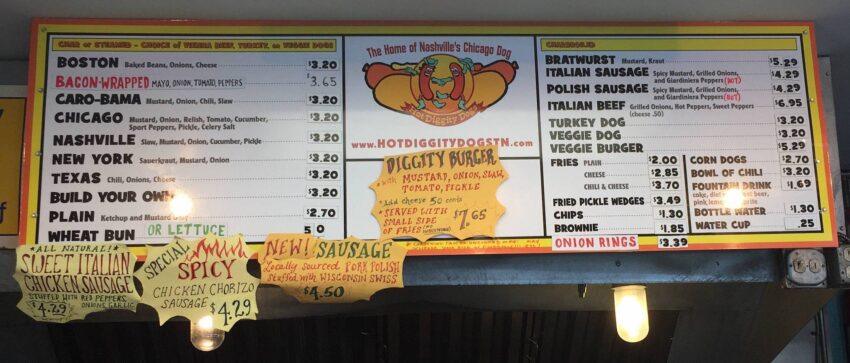 CHAR OR STEAMED - CHOICE OF VIENNA BEEF, TURKEY, OR VEGGIE DOGS
BOSTON Baked Beans, Onions, Cheese $3.20
BACON-WRAPPED MAYO, ONION, TOMATO, PEPPERS $3.65
CARO-BAMA Mustard, Onion, Chili, Slaw $3.20
CHICAGO Mustard, Onion, Relish, Tomato, Cucumber, $3.20
Sport Peppers, Pickle, Celery Salt
NASHVILLE Slaw, Mustard, Onion, Cucumber, Pickle $3.20
NEW YORK Sauerkraut, Mustard, Onion $3.20
TEXAS Chili, Onions, Cheese $3.20
BUILD YOUR OWN $3.20
PLAIN Ketchup and Mustard Only $2.70
WHEAT BUN OR LETTUCE 50
The Home of Nashville's Chicago Dog
Hot Diggity Dogs
www.HOTDIGGITYDOGSTN.com
DIGGITY BURGER
• with MUSTARD, ONION, SLAW,
TOMATO, PICKLE
*Add cheese 50 cents
*SERVED WITH
SMALL SIDE
OF FRIES
$7.65
CHARBROILED
BRATWURST Mustard, Kraut $5.29
ITALIAN SAUSAGE Spicy Mustard, Grilled Onions, $4.29
and Giardiniera Peppers (HOT)
POLISH SAUSAGE Spicy Mustard, Grilled Onions, $4.29
and Giardiniera Peppers (HOT)
ITALIAN BEEF Grilled Onions, Hot Peppers, Sweet Peppers $6.95
(cheese .50)
TURKEY DOG $3.20
VEGGIE DOG $3.20
VEGGIE BURGER $5.29
FRIES PLAIN $2.00
CHEESE $2.85
CHILI & CHEESE $3.70
FRIED PICKLE WEDGES $3.49
CHIPS $1.30
BROWNIE $1.85
ONION RINGS $3.39
CORN DOGS $2.70
BOWL OF CHILI $3.20
FOUNTAIN DRINK $1.69
coke, diet beer,
pink lemonade
BOTTLE WATER $1.30
WATER CUP .25
*ALL NATURAL!*
SWEET ITALIAN
CHICKEN SAUSAGE
STUFFED WITH RED PEPPERS,
ONIONS, GARLIC
$4.29
SPECIAL
SPICY
CHICKEN CHORIZO
SAUSAGE $4.29
NEW! SAUSAGE
Locally sourced PORK POLISH
Stuffed with WISCONSIN SWISS
$4.50